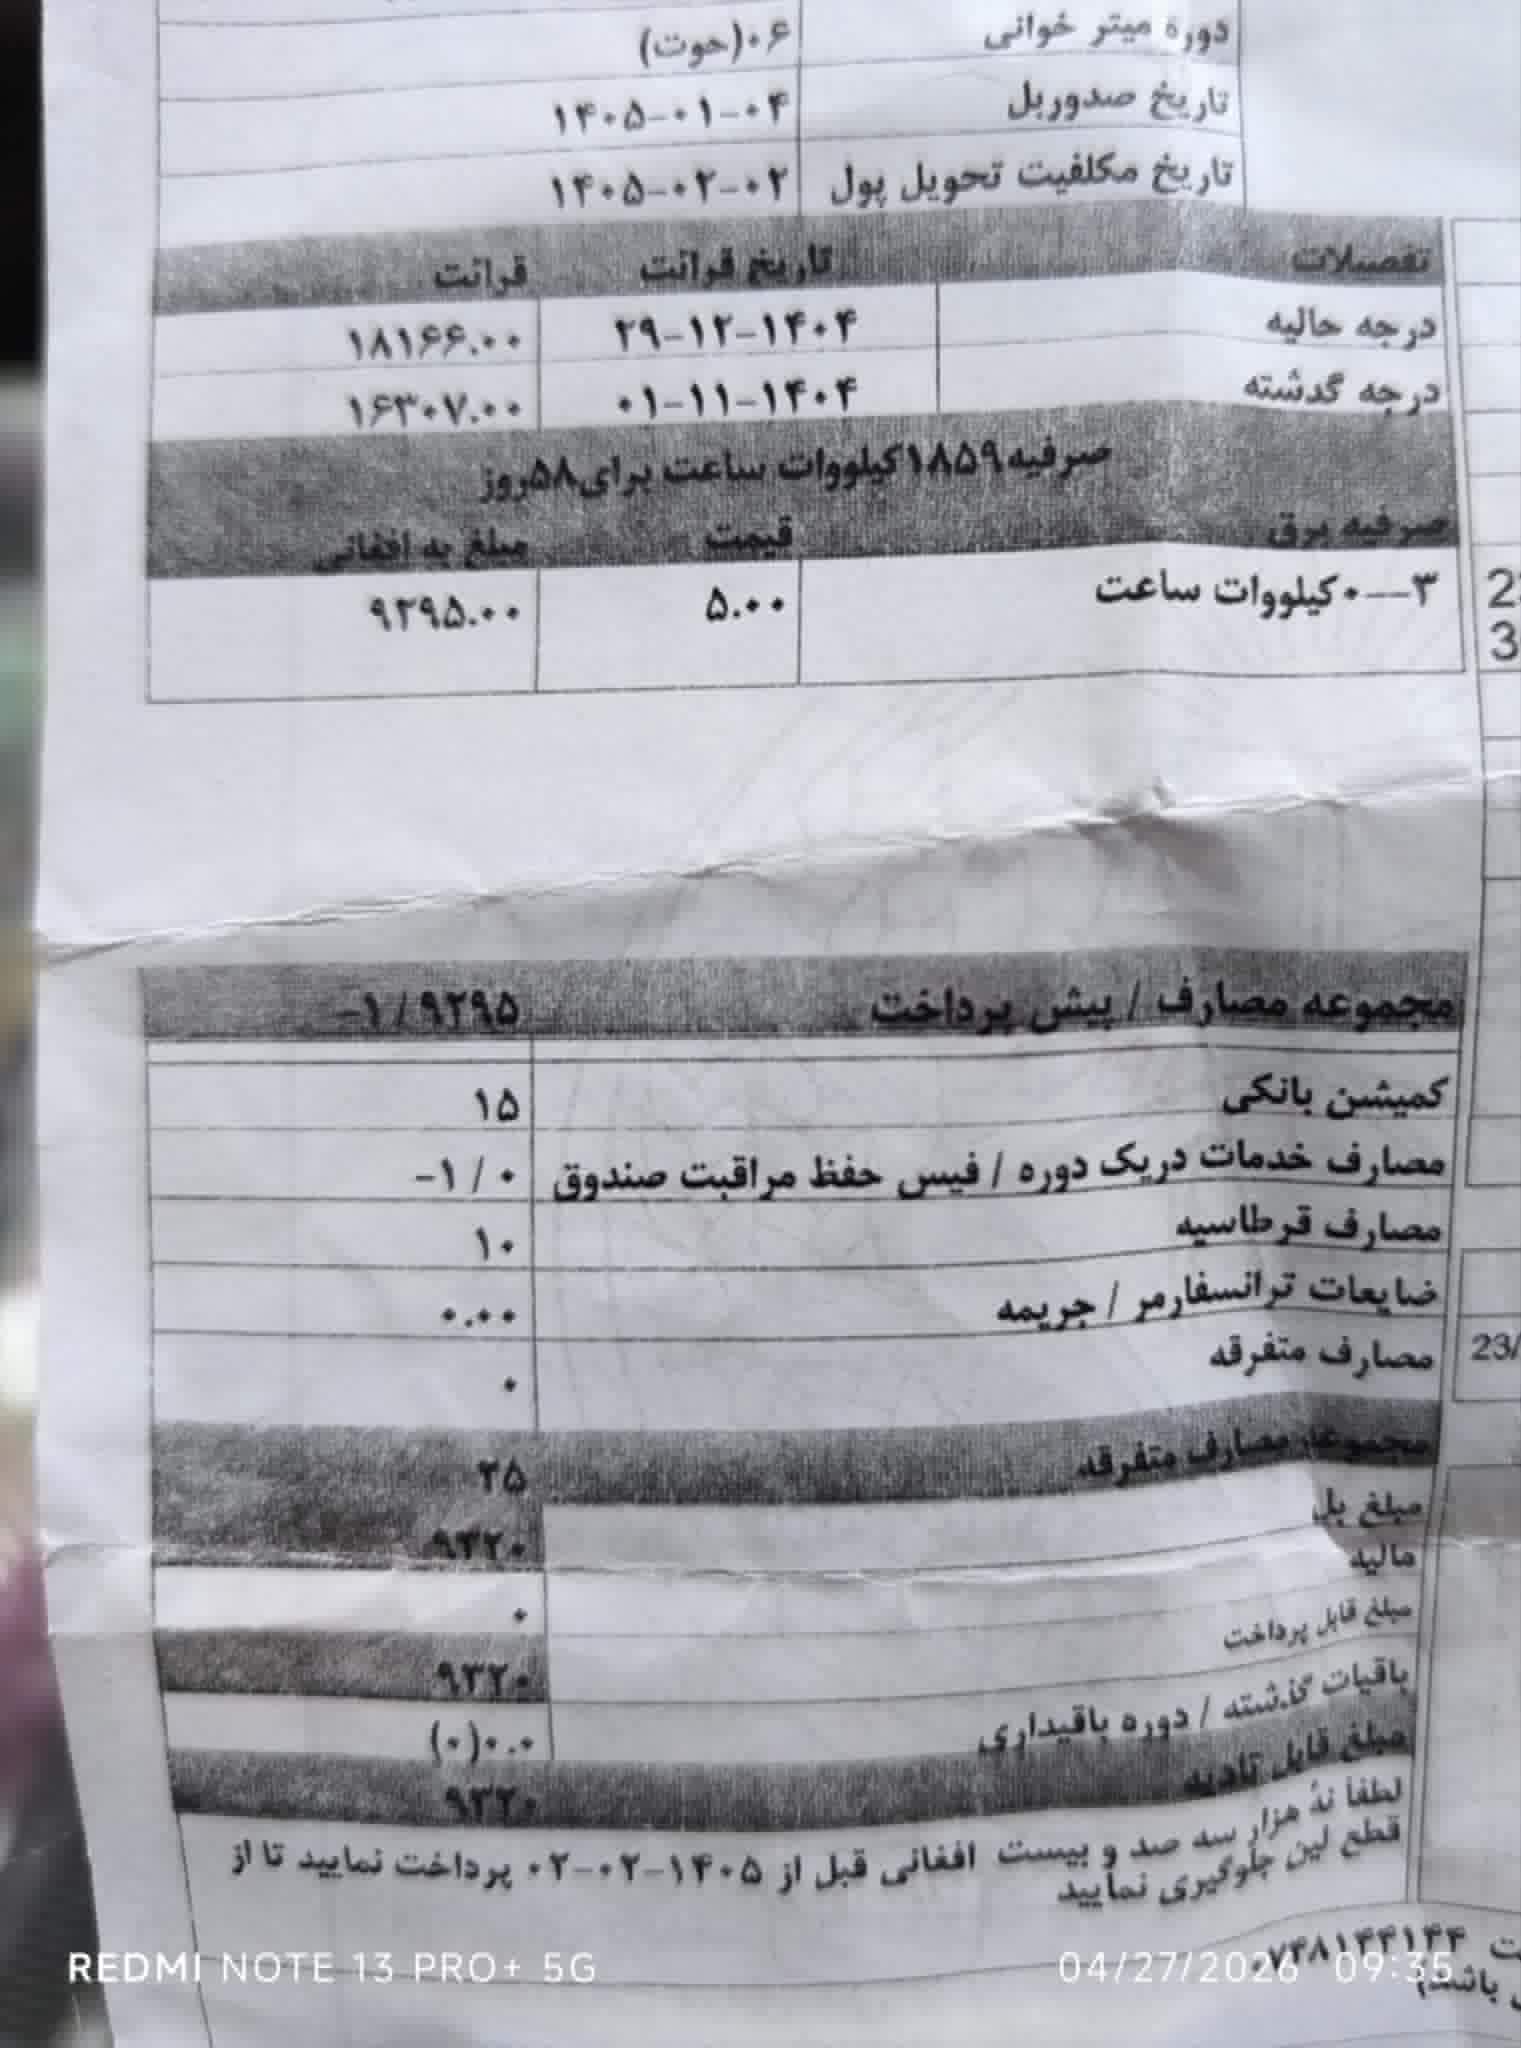 دوره میتر خوانی ۰۶(حوت)
تاریخ صدوربل ۱۴۰۵-۰۱-۰۴
تاریخ مکلفیت تحویل پول ۱۴۰۵-۰۲-۰۲
تفصیلات تاریخ قرائت قرائت
درجه حالیه ۲۹-۱۲-۱۴۰۴ ۱۸۱۶۶.۰۰
درجه گذشته ۰۱-۱۱-۱۴۰۴ ۱۶۳۰۷.۰۰
صرفیه۱۸۵۹کیلووات ساعت برای۵۸روز
صرفیه برق قیمت مبلغ به افغانی
۳---۰کیلووات ساعت ۵.۰۰ ۹۲۹۵.۰۰
مجموعه مصارف / پیش پرداخت ۹۲۹۵ / ۱-
کمیشن بانکی ۱۵
مصارف خدمات دریک دوره / فیس حفظ مراقبت صندوق ۰ / ۱-
مصارف قرطاسیه ۱۰
ضایعات ترانسفارمر / جریمه ۰.۰۰
مصارف متفرقه ۰
مجموعه مصارف متفرقه ۲۵
مبلغ بل ۹۳۲۰
مالیه ۰
مبلغ قابل پرداخت ۹۳۲۰
باقیات گذشته / دوره باقیداری ۰.۰(۰)
مبلغ قابل تادیه ۹۳۲۰
لطفا نه هزار سه صد و بیست افغانی قبل از ۱۴۰۵-۰۲-۰۲ پرداخت نمایید تا از
قطع لین جلوگیری نمایید
23/
REDMI NOTE 13 PRO+ 5G
04/27/2026 09:35